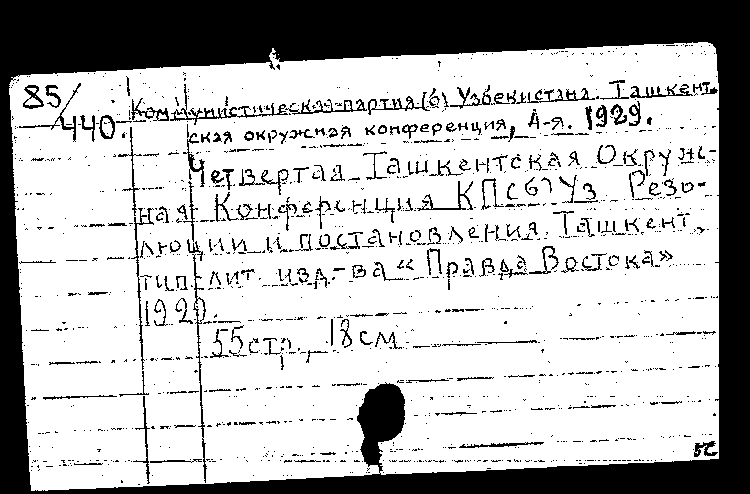 85/
440.
Коммунистическая партия (б) Узбекистана. Ташкент-
ская окружная конференция, 4-я. 1929.
Четвертая Ташкентская Окруж-
ная Конференция КП(б)Уз Резо-
люции и постановления. Ташкент,
тип-лит. изд.-ва "Правда Востока»
1929.
55стр., 18см